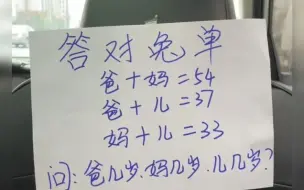 答对免单
爸+妈=54
爸+儿=37
妈+儿=33
问:爸几岁.妈几岁.儿几岁?